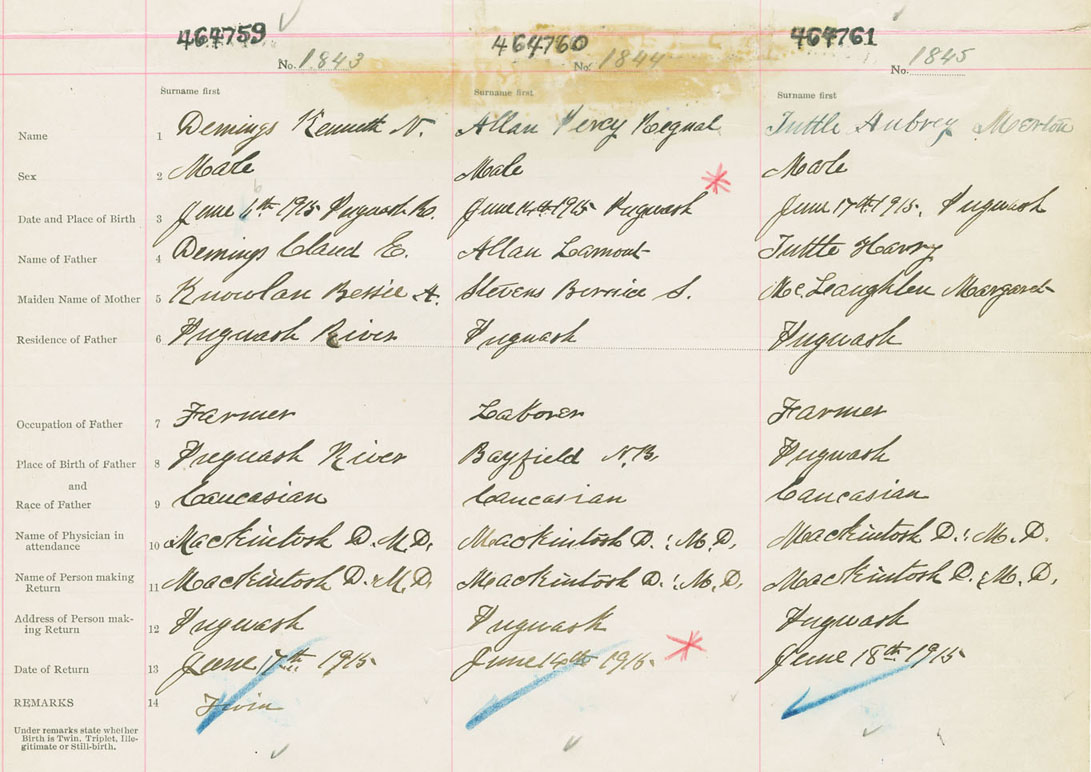 464759 464760 464761
No. 1843 No. 1844 No. 1845
Surname first Surname first
Name 1 Demings Kenneth N. Allan Percy Tuttle Aubrey Merton
Sex 2 Male Male Male
Date and Place of Birth 3 June 1915 Pugwash R. June 1915 Pugwash June 17th 1915. Pugwash
Name of Father 4 Demings Claud E. Allan Lamont Tuttle Harry
Maiden Name of Mother 5 Knowlan Bessie A. Stevens Bernice S. McLaughlen Margaret
Residence of Father 6 Pugwash River Pugwash Pugwash
Occupation of Father 7 Farmer Laborer Farmer
Place of Birth of Father 8 Pugwash River Bayfield N.B. Pugwash
and
Race of Father 9 Caucasian Caucasian Caucasian
Name of Physician in
attendance 10 Mackintosh D. M.D. Mackintosh D.: M.D. Mackintosh D.: M.D.
Name of Person making
Return 11 Mackintosh D. M.D. Mackintosh D.: M.D. Mackintosh D. M.D.
Address of Person mak-
ing Return 12 Pugwash Pugwash Pugwash
Date of Return 13 June 17th 1915 June 14th 1915. June 18th 1915
REMARKS 14 Twin
Under remarks state whether
Birth is Twin, Triplet, Ille-
gitimate or Still-birth.